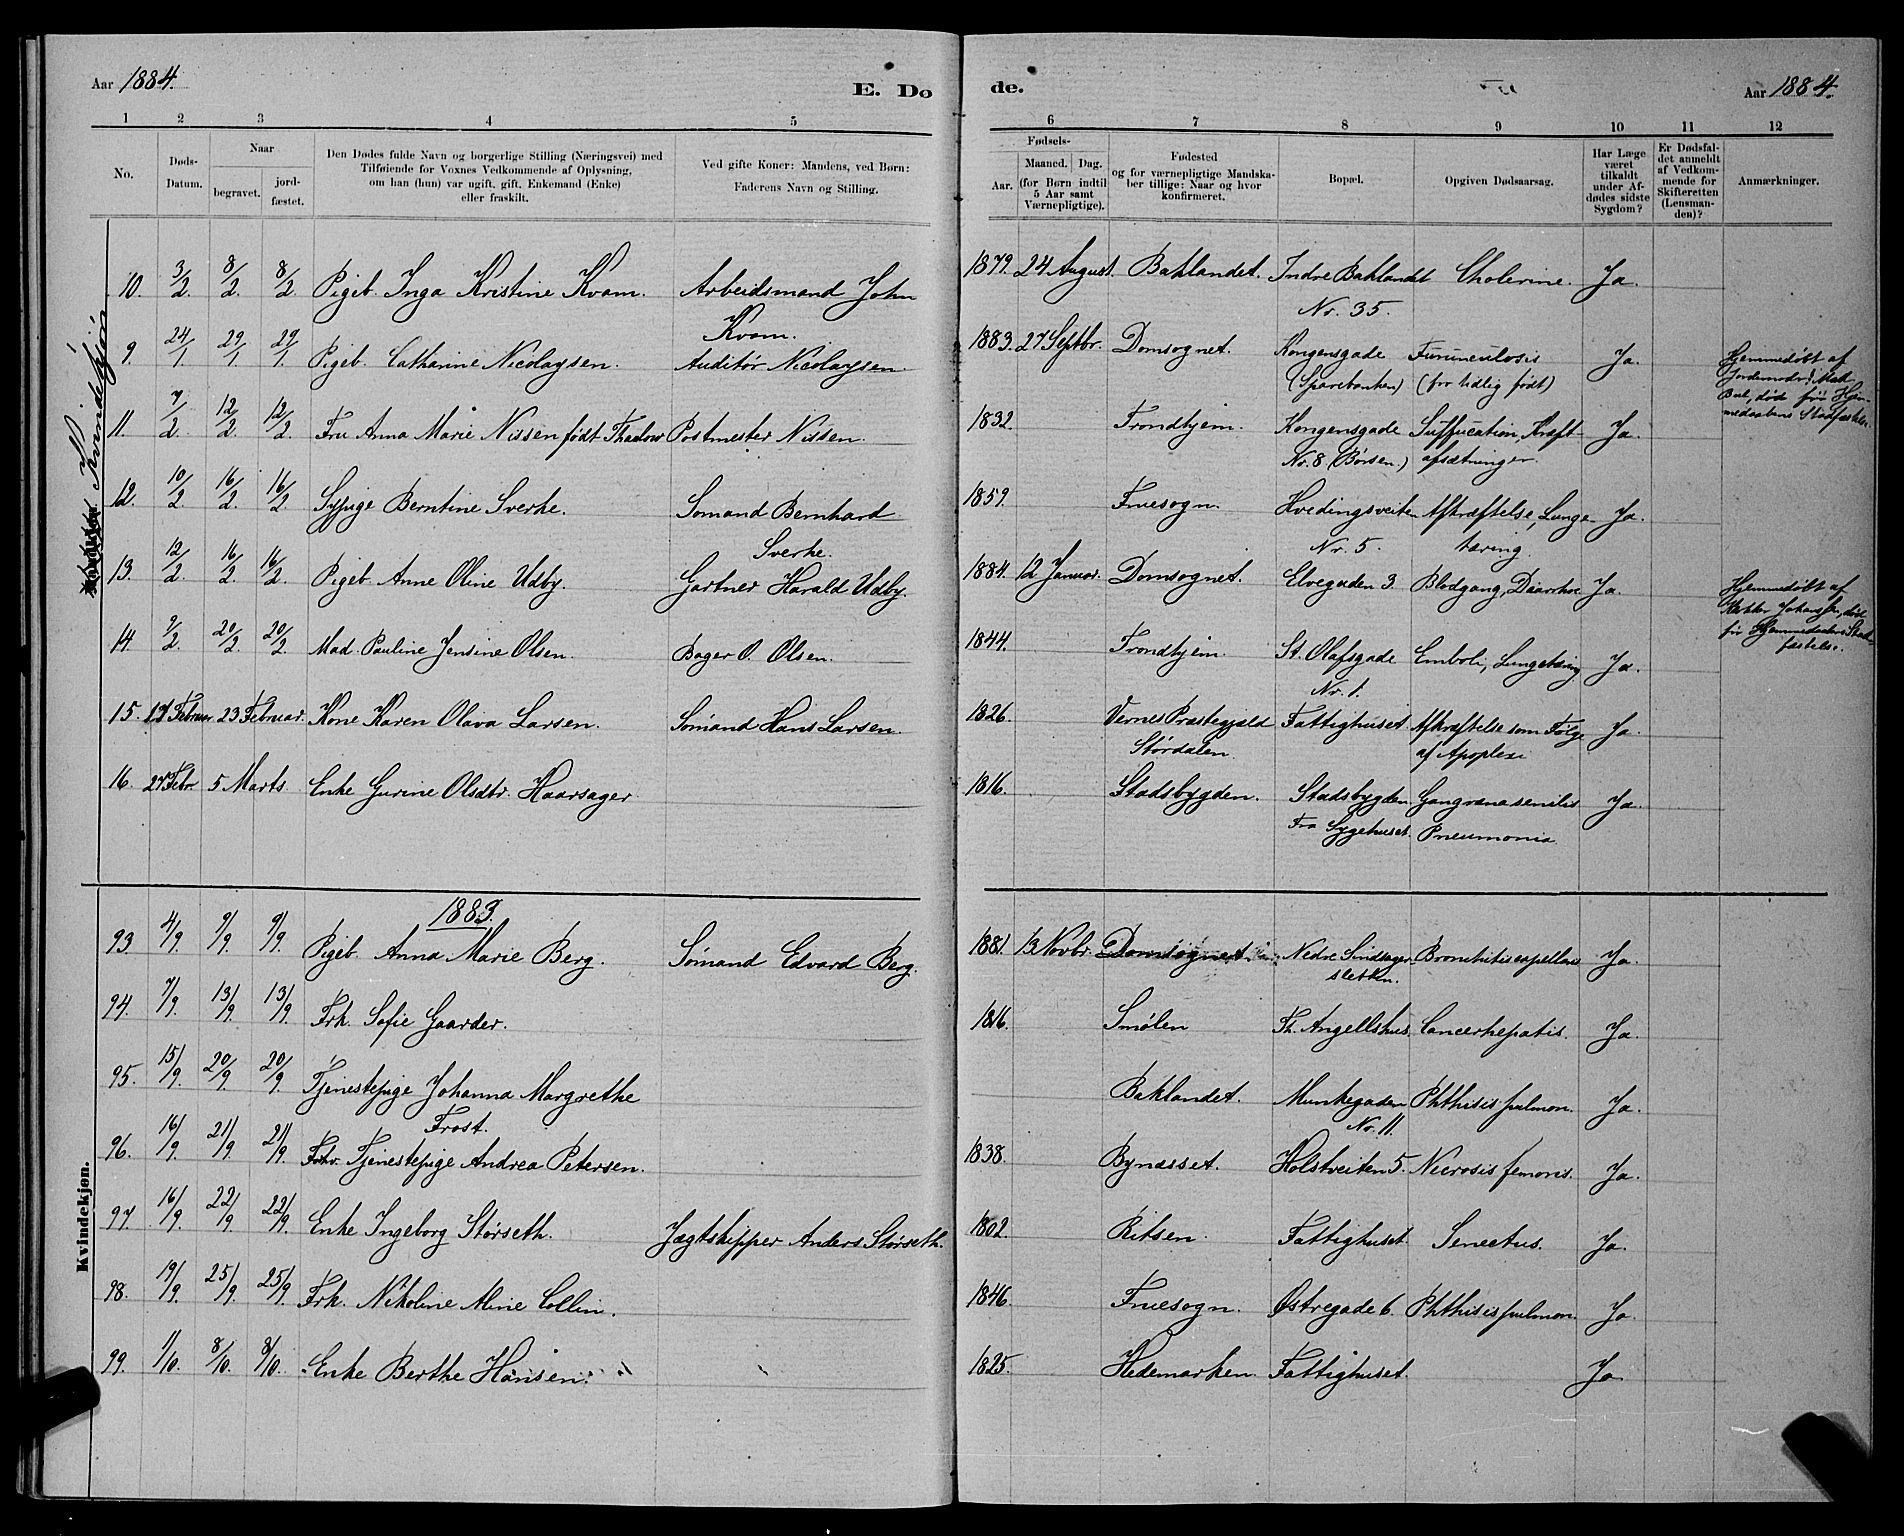 Aar 1884.
E. Dø
de.
Aar 1884.
1 2 3 4 5
6 7 8 9 10 11 12
No.
Døds-Datum.
Naar
begravet.
jord-fæstet.
Den Dødes fulde Navn og borgerlige Stilling (Næringsvei) med
Tilføiende for Voxnes Vedkommende af Oplysning,
om han (hun) var ugift, gift, Enkemand (Enke)
eller fraskilt.
Ved gifte Koner: Mandens, ved Børn:
Faderens Navn og Stilling.
Fødsels-
Aar.
Maaned. Dag.
(for Børn indtil
5 Aar samt
Værnepligtige).
Fødested
og for værnepligtige Mandska-
ber tillige: Naar og hvor
konfirmeret.
Bopæl.
Opgiven Dødsaarsag.
Har Læge
været
tilkaldt
under Af-
dødes sidste
Sygdom?
Er Dødsfal-
det anmeldt
af Vedkom-
mende for
Skifteretten
(Lensman-
den)?
Anmærkninger.
Kvindekjøn
10. 3/2. 8/2. 8/2. Pigeb. Inga Kristine Kvam. Arbeidsmand John
Kvam.
1879. 24 August. Baklandet. Indre Baklandet Cholerine. Ja.
Nr. 35.
9. 24/1. 29/1. 29/1. Pigeb. Catharine Nicolaysen. Auditør Nicolaysen.
1883. 27 Septbr. Domsognet. Kongensgade Furunculosis Ja.
(Sparebanken) (for tidlig født)
Hjemmedøbt af
Jordemoder
død før Hjem-
medaabens Stadfæstelse.
11. 7/2. 12/2. 12/2. Fru Anna Marie Nissen født Thaulow Postmester Nissen.
1832. Trondhjem. Kongensgade Suffucation, Kræft- Ja.
Nr. 8 (Børsen.) afsætninger.
12. 10/2. 16/2. 16/2. Sypige Berntine Sverke. Sømand Bernhard
Sverke.
1859. Fruesogn. Hvedingsveiten Afkræftelse, Lunge- Ja.
Nr. 5. tæring.
13. 12/2. 16/2. 16/2. Pigeb. Anne Oline Udby. Gartner Harald Udby.
1884. 12 Januar. Domsognet. Elvegaden 3. Blodgang, Diarrhoe Ja.
Hjemmedøbt af
død
før Hjemmedaabens Stad-
fæstelse.
14. 9/2. 20/2. 20/2. Mad. Pauline Jensine Olsen. Bager O. Olsen.
1844. Trondhjem. St. Olafsgade Emboli, Lungetæring Ja.
Nr. 1.
15. 17 Februar 23 Februar. Kone Karen Olava Larsen. Sømand Hans Larsen.
1826. Vernes Præstegjæld Fattighuset. Afkræftelse som Følge Ja.
Størdalen af Apoplexi
16. 27 Febr. 5 Marts Enke Gurine Olsdtr. Haarsager
1816. Stadsbygden. Stadsbygden Gangræna senilis Ja.
Fra Sygehuset. Pneumonia
1883.
Kvindekjøn.
93. 4/9. 9/9. 9/9. Pigeb. Anna Marie Berg. Sømand Edvard Berg.
1881. 13 Novbr. Domsognet Nedre Sindsager- Bronchitis capellaris Ja.
sletten.
94. 7/9. 13/9. 13/9. Frk. Sofie Gaarder.
1816. Smølen Th. Angellshus. Cancer hepatis. Ja.
95. 15/9. 20/9. 20/9. Tjenestepige Johanna Margrethe
Frost.
Baklandet. Munkegaden Phthisis pulmon. Ja.
No. 11.
96. 16/9. 21/9. 21/9. Tjenestepige Andrea Petersen.
1838. Bynæsset. Holstveiten 5. Necrosis femoris. Ja.
97. 16/9. 22/9. 22/9. Enke Ingeborg Størseth. Jægtskipper Anders Størseth.
1802. Ritsen. Fattighuset. Senectus. Ja.
98. 19/9. 25/9. 25/9. Frk. Nikoline Aline Collin.
1846. Fruesogn. Østregade 6. Phthisis pulmon. Ja.
99. 1/10. 8/10. 8/10. Enke Berthe Hansen.
1825. Hedemarken. Fattighuset. Ja